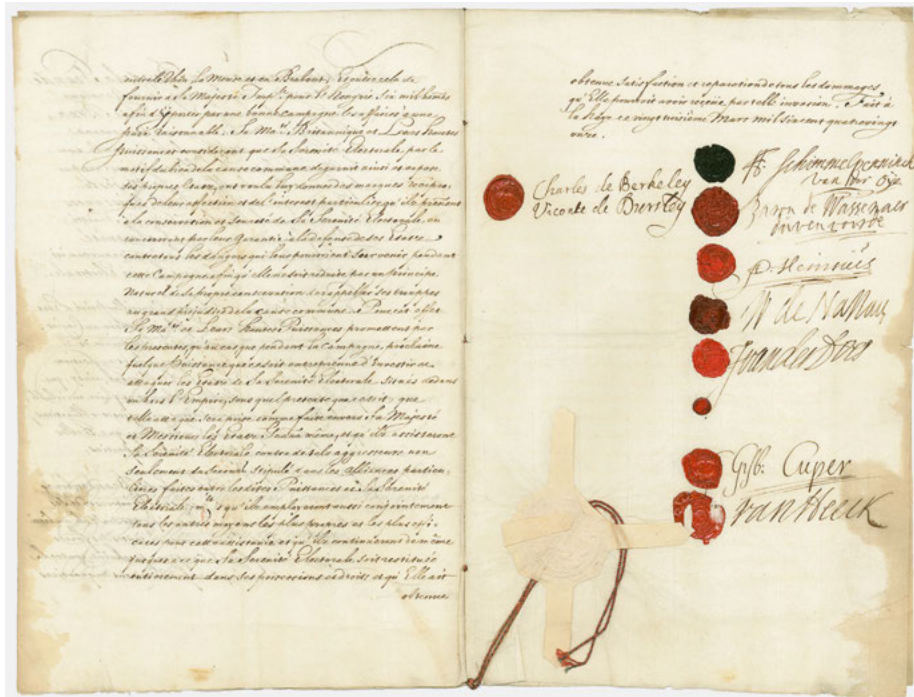 entre le Rhin la Meuse et en Brabant, et outre cela de
fournir à Sa Majesté Imp.le pour la Hongrie Six mil hom̄es
afin d'y par une bonne campagne les affaires a une
paix raisonnable. Sa Ma.té Britannique et Leurs hautes
Puissances considerant que Sa Serenité Electorale, par le
motif du bien de la cause commune degarnit ainsi et expose
ses propres Etats, ont voulu luy donner des marques recipro-
ques de leur affection et de l'interest particulier qu'ils prennent
à la conservation et seureté de Sa Serenité Electorale, en
concourant par leur Garantie à la defense de ses Estats
contre tous les dangers qui leur pourroient survenir pendant
cette Campagne afin qu'elle ne soit reduite par un principe
Naturel de sa propre conservation de rappeller ses trouppes
au grand prejudice de la cause commune. Pour cet effet
Sa Ma.té et Leurs hautes Puissances promettent par
les presentes, qu'en cas que pendant la Campagne prochaine
quelque Puissance que ce soit entreprenne d'investir ou
attaquer les Etats de Sa Serenité Electorale situés dedans
ou hors l'Empire, sous quel pretexte que ce soit, que
telle attaque sera prise comme faite envers Sa Majesté
et Messieurs les Etats Gaux même, et qu'ils assisteront
Sa Serenité Electorale contre de tels aggresseurs non
seulement du Secours stipulé dans les alliances particu-
lieres faites entre les dites Puissances et Sa Serenité
Electorale, qu'ils employeront aussi conjointement
tous les autres moyens les plus propres et les plus effi-
caces pour cette assistance et qu'ils continueront de même
jusques a ce que Sa Serenité Electorale soit restituée
entierement dans ses possessions et droits, et qu'Elle ait
obtenue
obtenue satisfaction et reparation de tous les dommages
qu'Elle pourroit avoir reçeue par telle invasion. Fait à
la Haye ce vingt troisieme Mars mil six cent quatre vingt
onze.
Charles de Berkeley
Viconte de Dursley
Schimmelpenninck
van der Oije
Baron de Wassenaer
A. Heinsius
W de Nassau
J vander Does
Gisb: Cuper
van Heeck